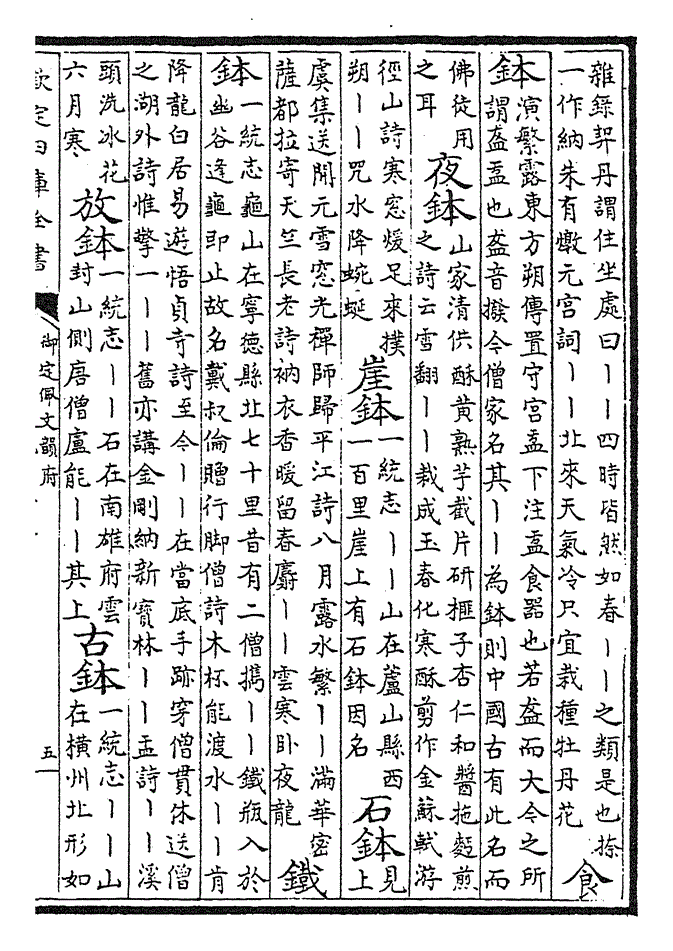 雜錄契丹謂住坐處曰丨丨四時皆然如春丨丨之類是也捺
一作納朱有燉元宮詞丨丨北來天氣冷只宜栽種牡丹花
食
鉢
演繁露東方朔傳置守宮盂下注盂食器也若盋而大今之所
謂盋盂也盋音撥今僧家名其丨丨為鉢則中國古有此名而
佛徒用
之耳
夜鉢
山家清供酥黃熟芋截片研榧子杏仁和醬拖麪煎
之詩云雪翻丨丨裁成玉春化寒酥剪作金蘇軾游
徑山詩寒窓煖足來撲
朔丨丨咒水降蜿蜒
崖鉢
一統志丨丨山在蘆山縣西
一百里崖上有石鉢因名
石鉢
見
上
虞集送開元雪窓光禪師歸平江詩八月露水繁丨丨滿華密
薩都拉寄天竺長老詩衲衣香暖留春麝丨丨雲寒卧夜龍
鐵
鉢
一統志龜山在寧德縣北七十里昔有二僧攜丨丨鐵瓶入於
幽谷逢龜即止故名戴叔倫贈行脚僧詩木杯能渡水丨丨肯
降龍白居易遊悟貞寺詩至今丨丨在當底手跡穿僧貫休送僧
之湖外詩惟擎一丨丨舊亦講金剛納新寶林丨丨盂詩丨丨溪
頭洗冰花
六月寒
放鉢
一統志丨丨石在南雄府雲
封山側唐僧盧能丨丨其上
古鉢
一統志丨丨山
在橫州北形如
欽定四庫全書
御定佩文韻府
五